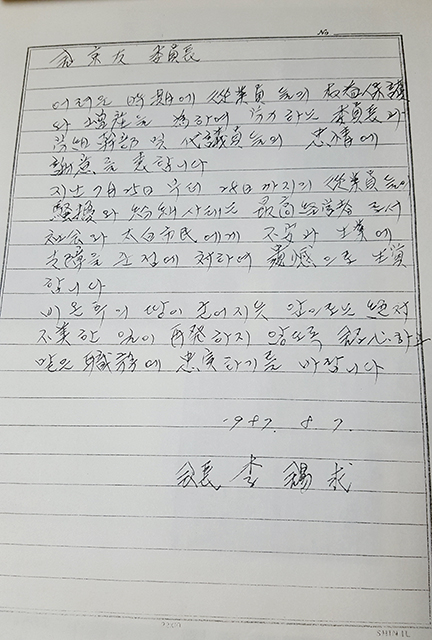 No
委員長
어려운 時期에 從業員들의 權益保護
와 增産을 爲하여 努力하는 委員長과
및 代議員들의 忠情에
謝意를 表합니다
지난 7月 25日 부터 28日까지의 從業員들의
騷擾와 紛糾사태는 最高経営者로서
社会와 太白市民에게 不安과 生業에
支障을 준 점에 対하여 遺憾으로 生覺
합니다
비온 뒤의 땅이 굳어지듯 앞으로는 絶対
不美한 일이 再発하지 않도록 하고
맡은 職務에 忠実하기를 바랍니다
1987. 8. 7.
会長 李
SHIN IL